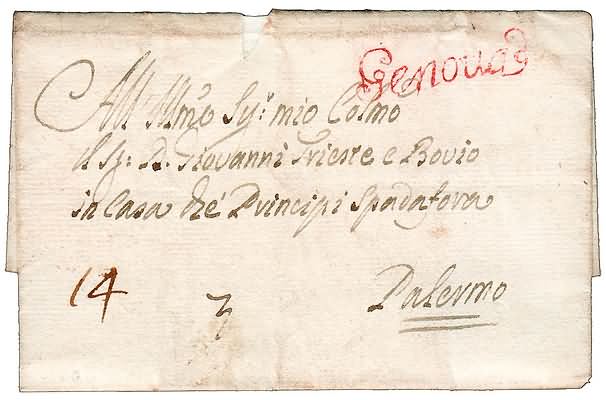 Genova
All' Illmo Sig.r mio Colmo
il Sig: D. Giovanni Trieste e Bovio
in Casa de' Principi Spadafora
14
Palermo